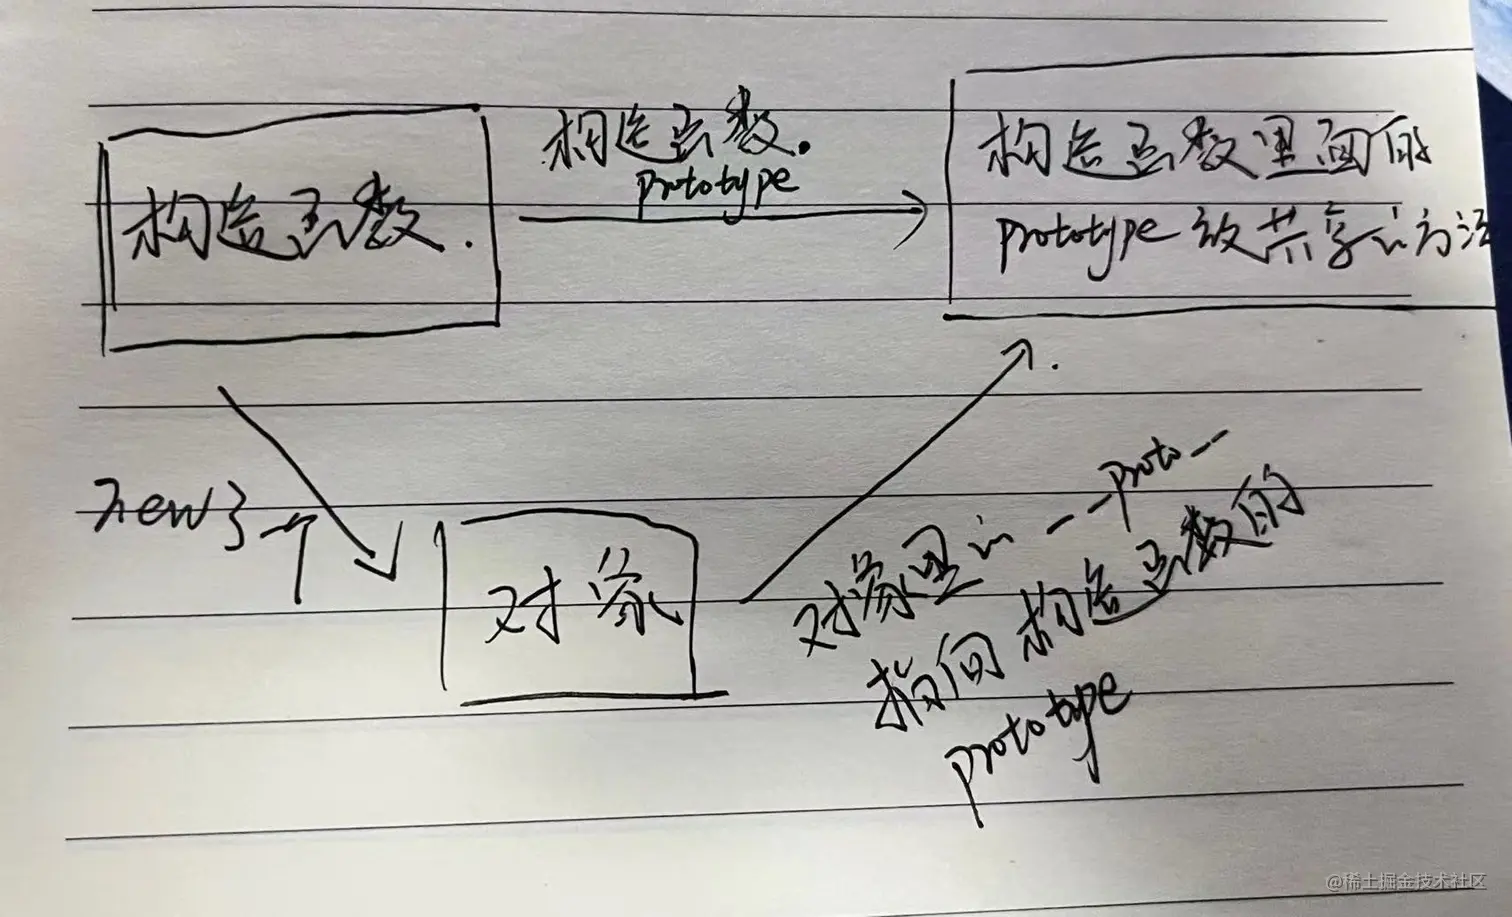 构造函数.
prototype
构造函数.
构造函数里面的
prototype 放共享的方法
new了一个
对象
对象里的 __proto__
指向 构造函数的
prototype
@稀土掘金技术社区